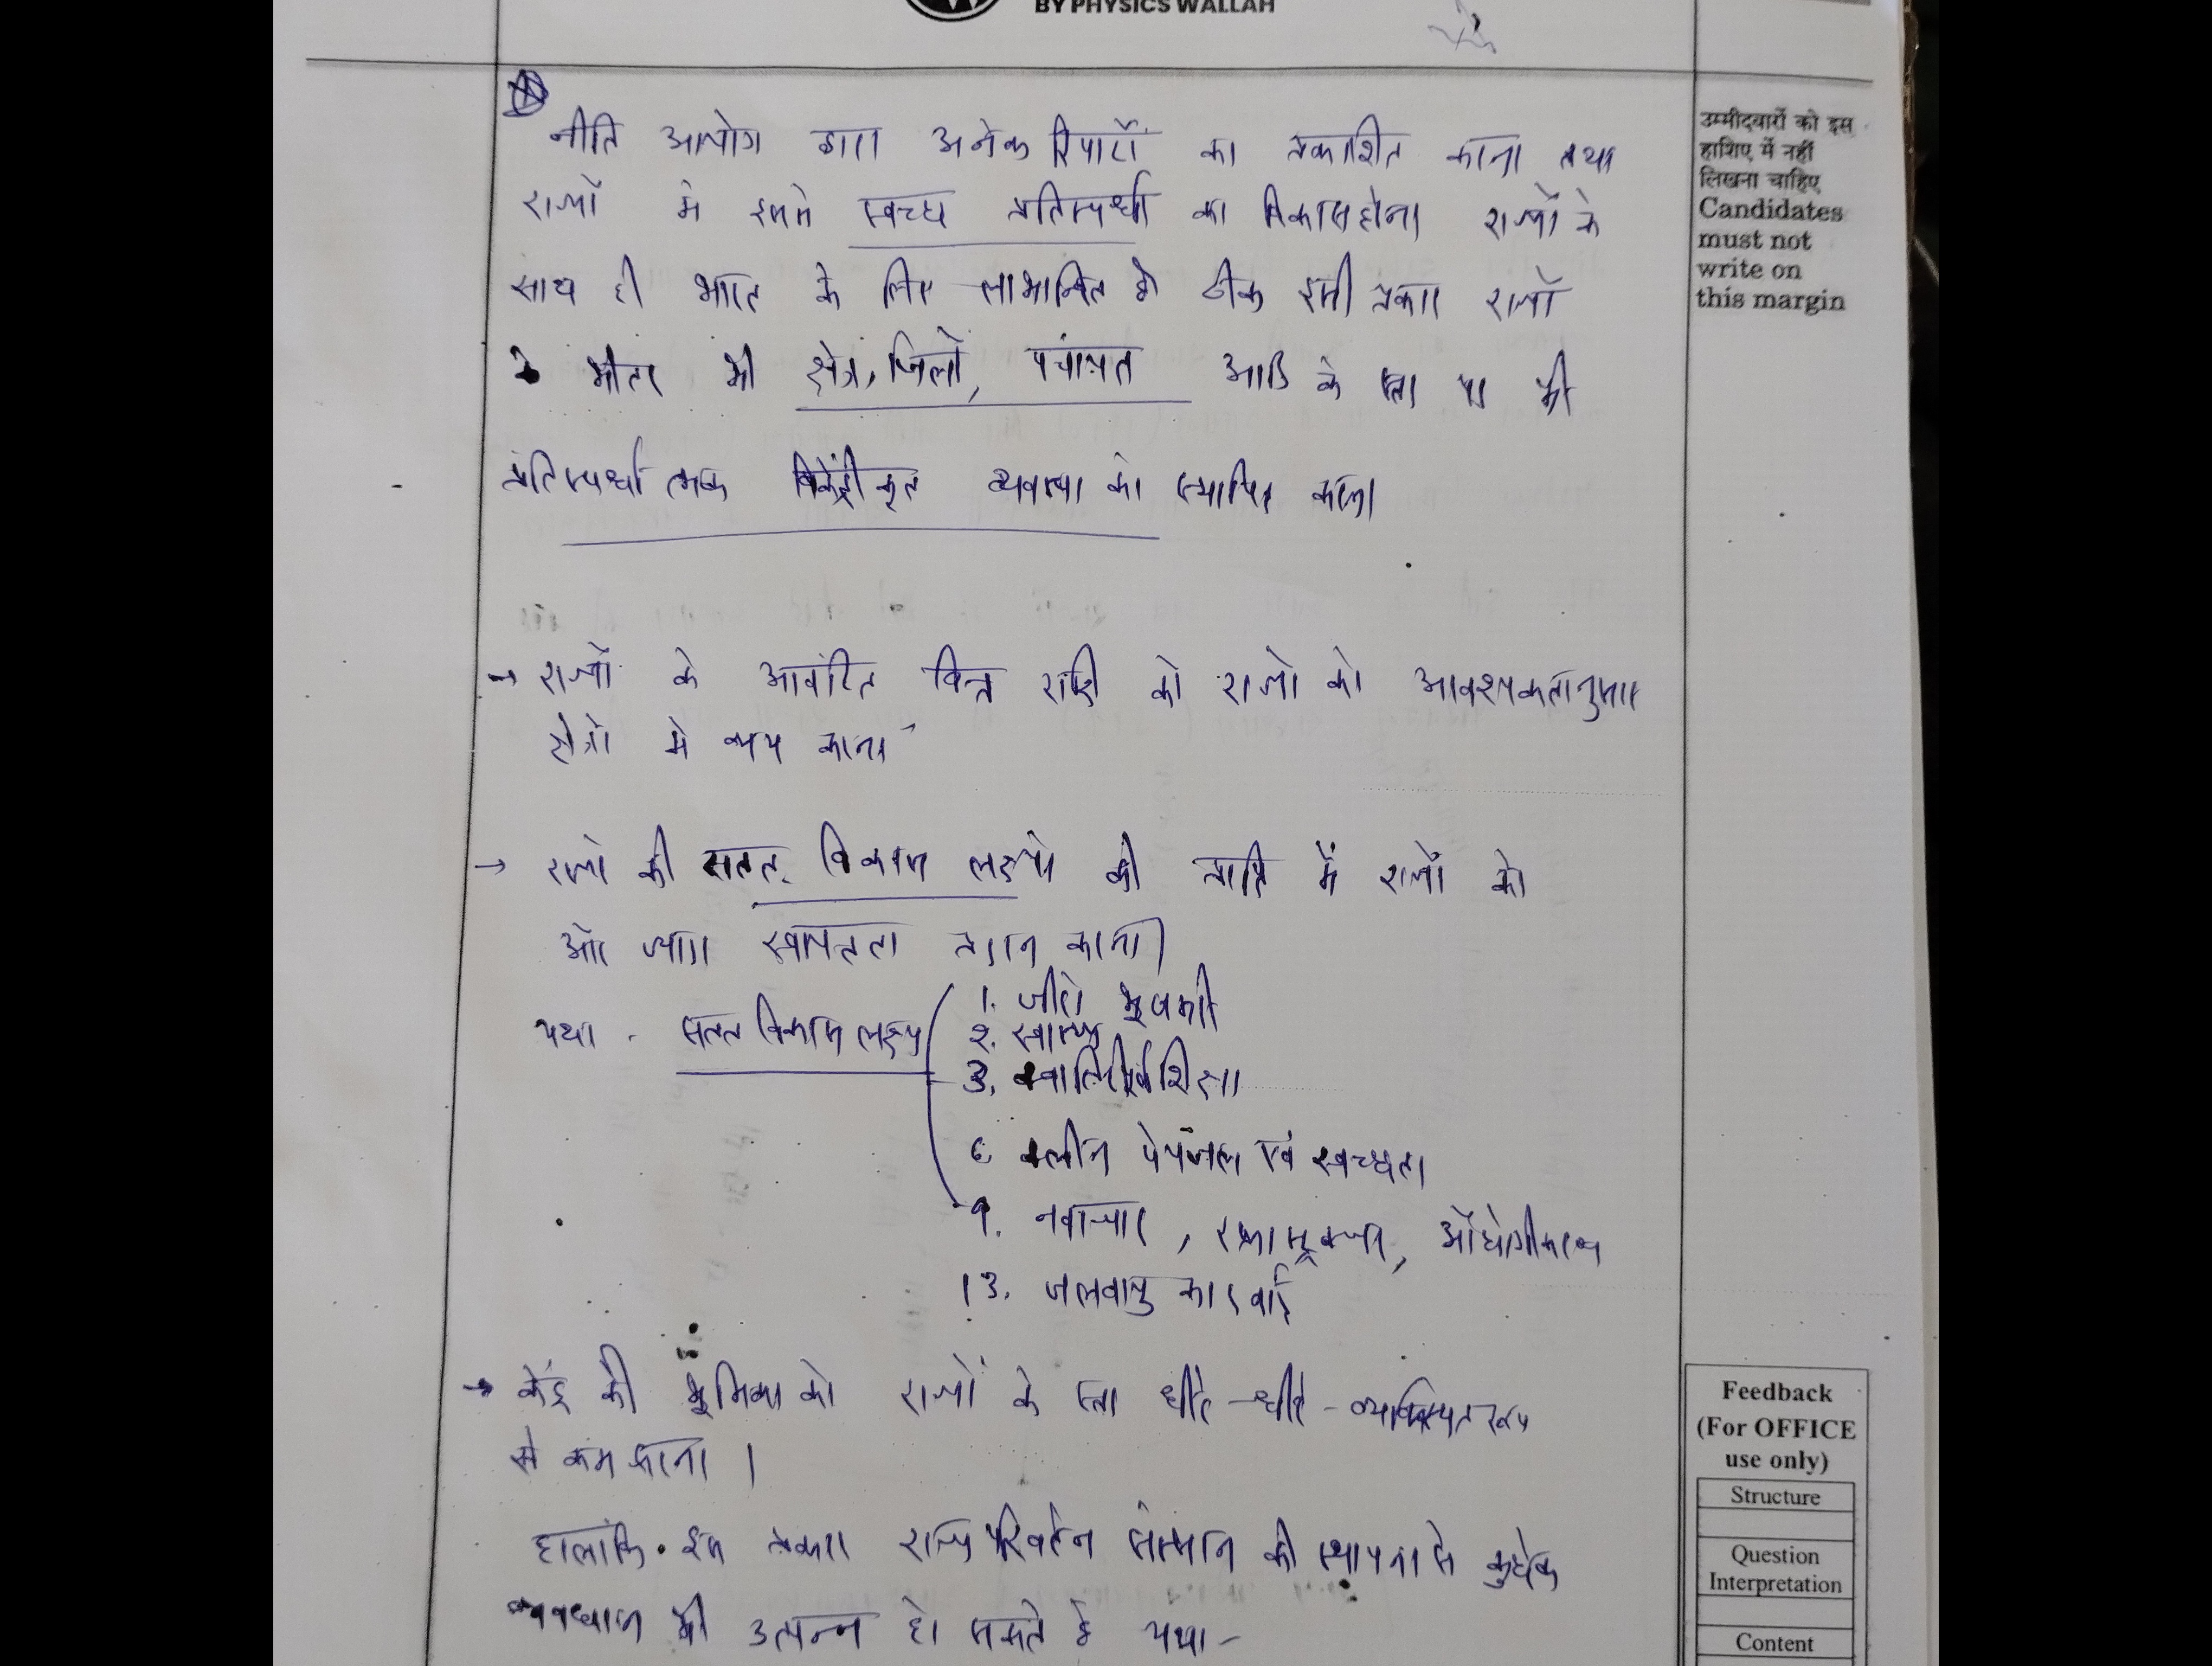 BY PHYSICS WALLAH
उम्मीदवारों को इस
हाशिए में नहीं
लिखना चाहिए
Candidates
must not
write on
this margin
नीति आयोग द्वारा अनेक रिपोर्टों का प्रकाशित करना तथा
राज्यों में इससे स्वच्छ प्रतिस्पर्धा का विकास होना राज्यों के
साथ ही भारत के लिए लाभान्वित है ठीक इसी प्रकार राज्यों
के भीतर भी क्षेत्र, जिलों, पंचायत आदि के स्तर पर भी
प्रतिस्पर्धात्मक विकेंद्रीकृत व्यवस्था को स्थापित करना
→ राज्यों के आवंटित वित्त राशि को राज्यों को आवश्यकतानुसार
क्षेत्रों में व्यय करना
→ राज्यों की सतत् विकास लक्ष्यों की प्राप्ति में राज्यों को
और ज्यादा स्वायत्तता प्रदान करना
यथा - सतत विकास लक्ष्य
1. जीरो भूखमरी
2. स्वास्थ्य
3. शिक्षा
6 क्लीन पेयजल एवं स्वच्छता
9. नवाचार, औद्योगीकरण
13. जलवायु कार्रवाई
→ केंद्र की भूमिका को राज्यों के स्तर धीरे-धीरे - व्यवस्थित रूप
से कम करना ।
हालांकि इस प्रकार राज्य परिवर्तन संस्थान की स्थापना से कुछेक
व्यवधान भी उत्पन्न हो सकते है यथा -
Feedback
(For OFFICE
use only)
Structure
Question
Interpretation
Content